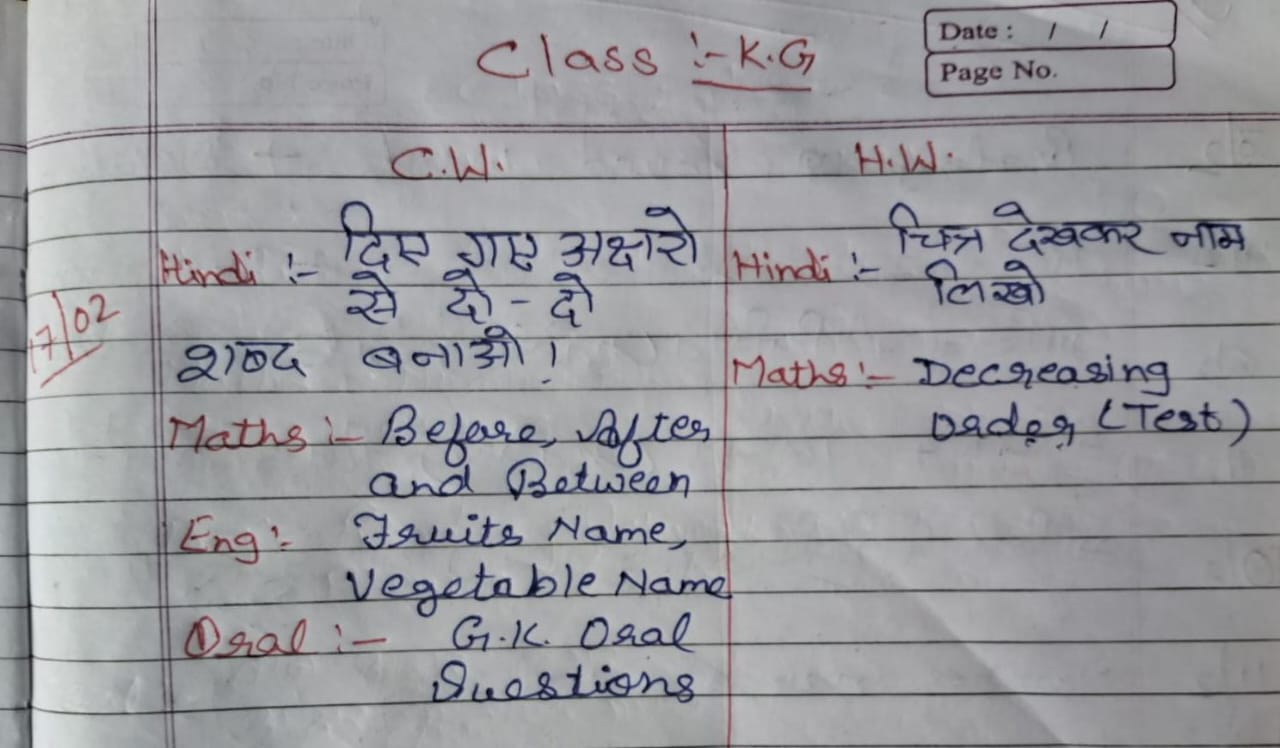 Date : / /
Page No.
Class :- K.G
C.W.
H.W.
17/02
Hindi :- दिए गए अक्षरो
से दो - दो
शब्द बनाओ !
Maths :- Before, After
and Between
Eng :- Fruits Name,
Vegetable Name
Oral :- G.K. Oral
Questions
Hindi :- चित्र देखकर नाम
लिखो
Maths :- Decreasing
Order (Test)